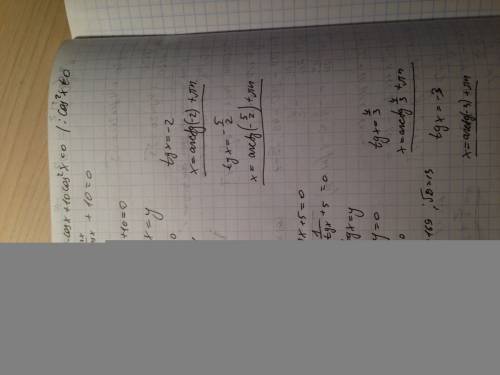 cosx + 10cos²x = 0 / : cos²x ≠ 0
+ 10 = 0
+10 = 0
x = y
tgx = -2
x = arctg(-2) + πn
tgx = -5/2
x = arctg(-5/2) + πn
x + 5 = 0
1/tgx + 5 = 0
tgx = y
y = 0
tgx = 4/3
x = arctg 4/3 + πn
169 ; √D = 13
tgx = -3
x = arctg(-3) + πn